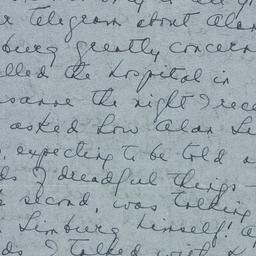 telegram about Alan
burg greatly concern
lled the hospital in
sanne the night I rece
asked how Alan Li
, expecting to be told a
ds of dreadful things —
s second, was talking
Limburg himself! a
ds I talked with